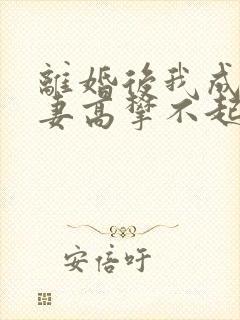 離婚後我成
妻高攀不起
安倍吁